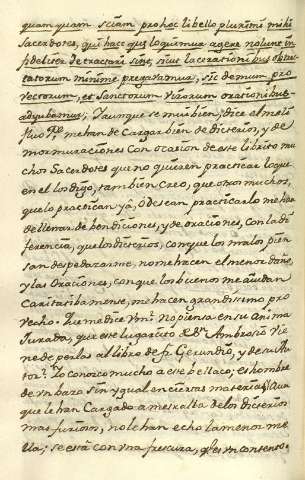 quamquam sciam pro hoc libello plurimi mihi
Sacerdotes, qui haec quae loquimur agere nolunt in
fideliter detractari sine, sicut lacerationibus obtrec
tatorum minime pregravamur, sic demum pro
vectorum, et Sanctorum Virorum orationibus
adjubamur; Y aunque se mui bien, dice el mesmo
que me han de Cargar bien de dicterios, y de
mormuraciones con ocasion de este librito mu
chos Sacerdotes que no quieren practicar lo que
en el los digo, tambien creo, que otros muchos,
que lo practican ya, ô desean practicarlo me han
de llenar de bendiciones, y de oraciones, con la di
ferencia, que los dicterios, con que los malos pien
san despedazarme, no me hacen el menor daño,
y las Oraciones, con que los buenos me ayudan
Caritatibamente, me hacen grandissimo pro
vecho. Que me dice Vm. No piensa en su anima
Jurada, que este lugarcico de Sn Ambrosio vie
ne de perlas al libro de fr. Gerundio, y de su Au
tor? Yo conozco mucho a este bellaco; es hombre
de un bazo sin ygual en ciertas materias; Aun
que le han Cargado a mesralla de los dicterios
mas furiosos, no le han echo la menor me
lla; se está con una frescura, que es un contento.